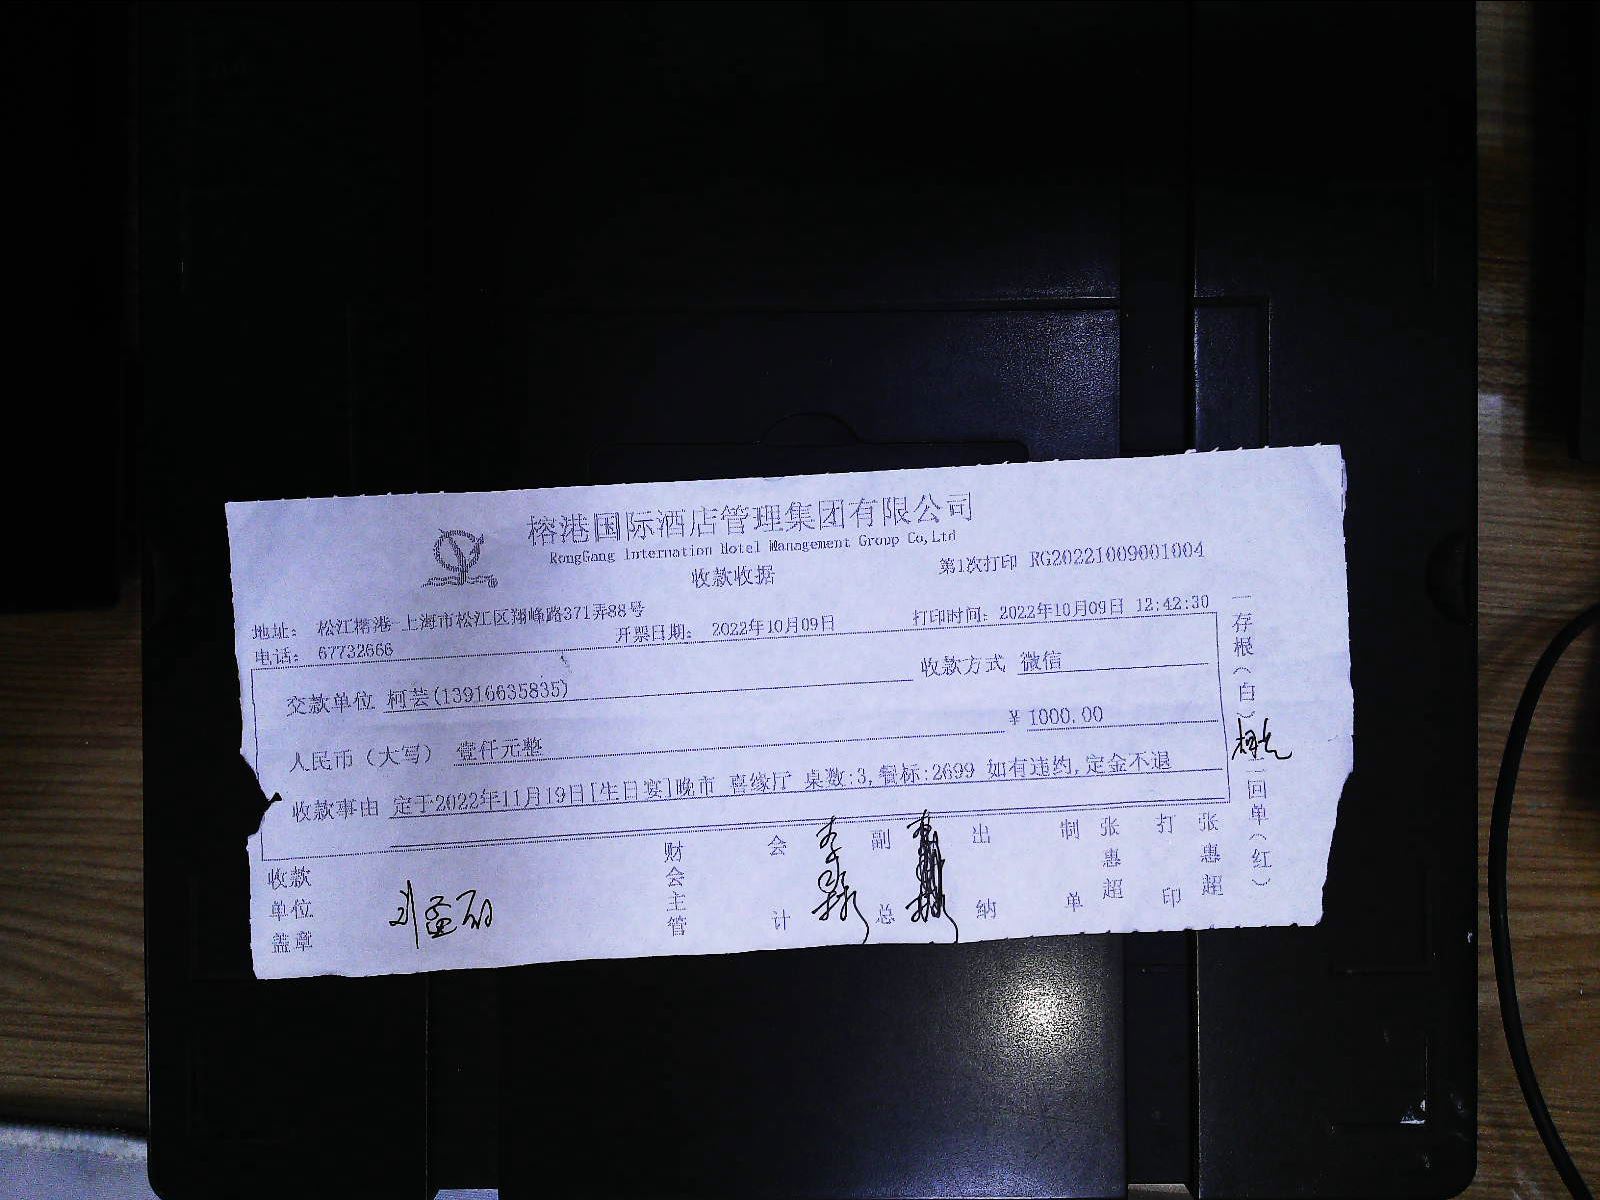 榕港国际酒店管理集团有限公司
RongGang Internation Hotel Management Group Co,Ltd
收款收据
第1次打印 RG20221009001004
地址： 松江榕港-上海市松江区翔峰路371弄88号
电话： 67732666
开票日期： 2022年10月09日
打印时间：2022年10月09日 12:42:30
交款单位 柯芸(13916635835)
收款方式 微信
人民币（大写） 壹仟元整
¥ 1000.00
收款事由 定于2022年11月19日[生日宴]晚市 喜缘厅 桌数:3,餐标:2699 如有违约,定金不退
收款单位盖章
财会主管
会计
副总
出纳
制单
张惠超
打印
张惠超
一存根(白)
二回单(红)